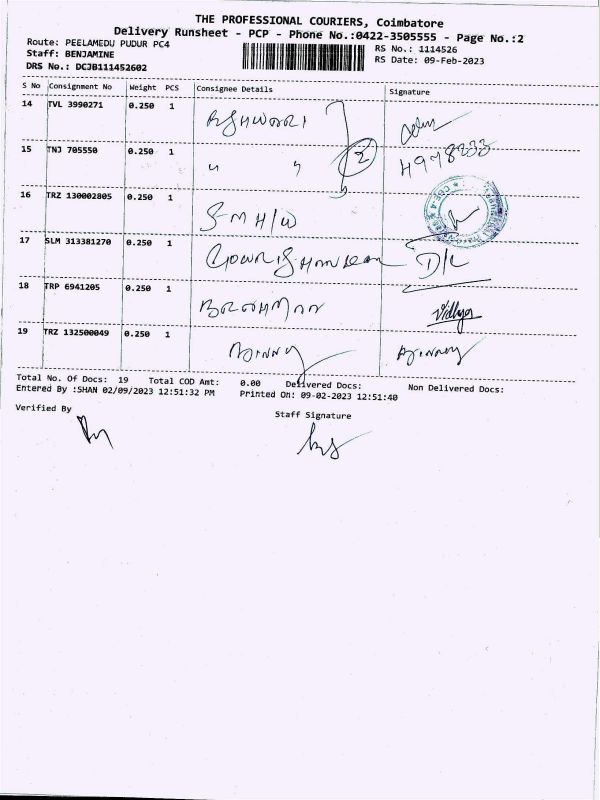 THE PROFESSIONAL COURIERS, Coimbatore
Delivery Runsheet - PCP - Phone No.:0422-3505555 - Page No.:2
Route: PEELAMEDU PUDUR PC4
RS No.: 1114526
Staff: BENJAMINE
RS Date: 09-Feb-2023
DRS No.: DCJB111452602
S No Consignment No Weight PCS Consignee Details Signature
14 TVL 3990271 0.250 1
15 TNJ 705550 0.250 1 " " 2
16 TRZ 130002805 0.250 1
17 SLM 313381270 0.250 1 D/L
18 TRP 6941205 0.250 1 Vidhya
19 TRZ 132500049 0.250 1 Binny Binny
Total No. Of Docs: 19 Total COD Amt: 0.00 Delivered Docs: Non Delivered Docs:
Entered By :SHAN 02/09/2023 12:51:32 PM Printed On: 09-02-2023 12:51:40
Verified By
Staff Signature